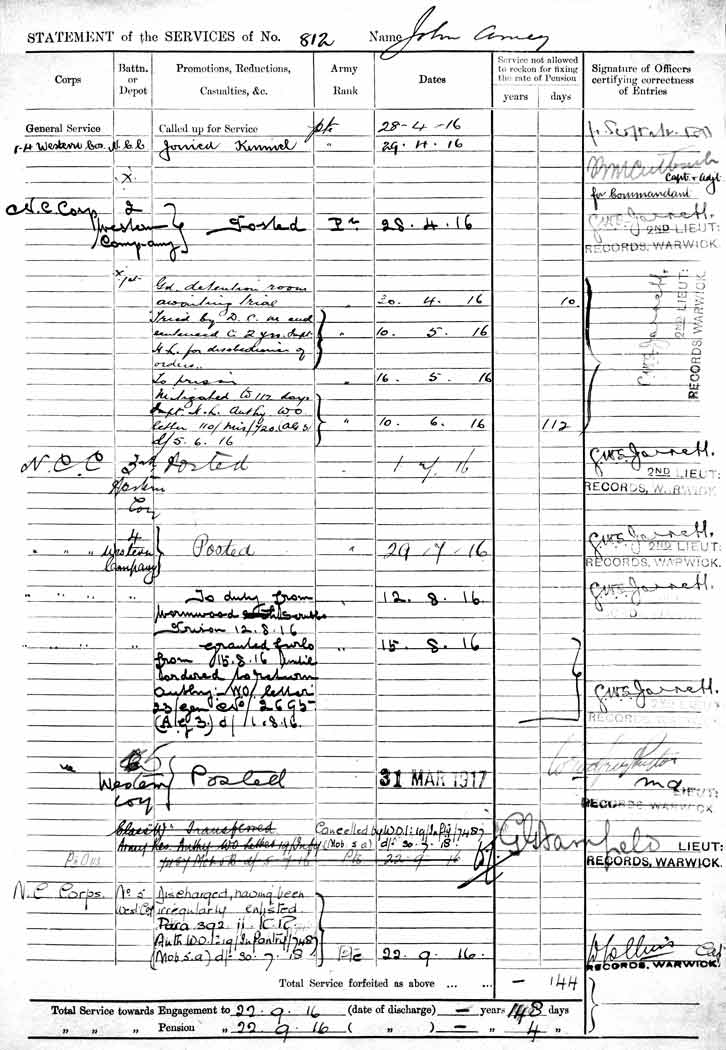 STATEMENT of the SERVICES of No. 812 Name John
Corps
Battn. or Depot
Promotions, Reductions, Casualties, &c.
Army Rank
Dates
Service not allowed to reckon for fixing the rate of Pension
years days
Signature of Officers certifying correctness of Entries
General Service Called up for Service Pte 28-4-16
Western N.C.C. Joined Kinmel " 29.4.16
Capt & Adjt
for Commandant
N.C. Corp 2 Western Company Posted Pte 28.4.16 G.W.S. Jarrett.
2ND LIEUT:
RECORDS, WARWICK.
Gd. detention room
awaiting trial " 30. 4. 16 10.
Tried by D.C.M. and
sentenced to 2 yrs. Impt. " 10. 5. 16
H.L. for disobedience of
orders.
G.W.S. Jarrett.
2ND LIEUT:
RECORDS, WARWICK.
To prison " 16. 5. 16
Mitigated to 112 days
Impt. H.L. Authy WO
letter 110/Mis/720. " 10. 6. 16 112
d/5.6.16
N.C.C 3rd Western Coy Posted 1 7 16 G.W.S. Jarrett.
2ND LIEUT:
RECORDS, WARWICK.
" " " 4 Western Company Posted " 29.7.16 G.W.S. Jarrett.
2ND LIEUT:
RECORDS, WARWICK.
" " " " To duty from " 12.8.16 G.W.S. Jarrett.
Wormwood Scrubs
Prison 12.8.16
" " " " granted furlo " 15.8.16
from 15.8.16 until
ordered to return
authy:- WO letter
23/Gen No/2695
(A.G.3.) d/1.8.16.
G.W.S. Jarrett.
2ND LIEUT:
RECORDS, WARWICK.
" 5 Western Coy Posted 31 MAR 1917
LIEUT:
RECORDS WARWICK
Class W. Transferred Cancelled by W.O.l: 19/Infy/7487
Army Res. Authy WO Letter 19/Infy (Mob 5a) d/- 30.7.18.
Pte 22.9.16
LIEUT:
RECORDS, WARWICK.
N.C Corps. No 5 West Coy Discharged, having been
irregularly enlisted
Para 392 ii K.R.
Auth W.O.l: 19/Infantry/7487
(Mob 5.a) d/- 30.7.18 Pte 22.9.16. W Collins
RECORDS, WARWICK.
Total Service forfeited as above ... ... – 144
Total Service towards Engagement to 22.9.16 (date of discharge) – years 148 days
" " " Pension " 22.9.16 ( " ) – " 4 "